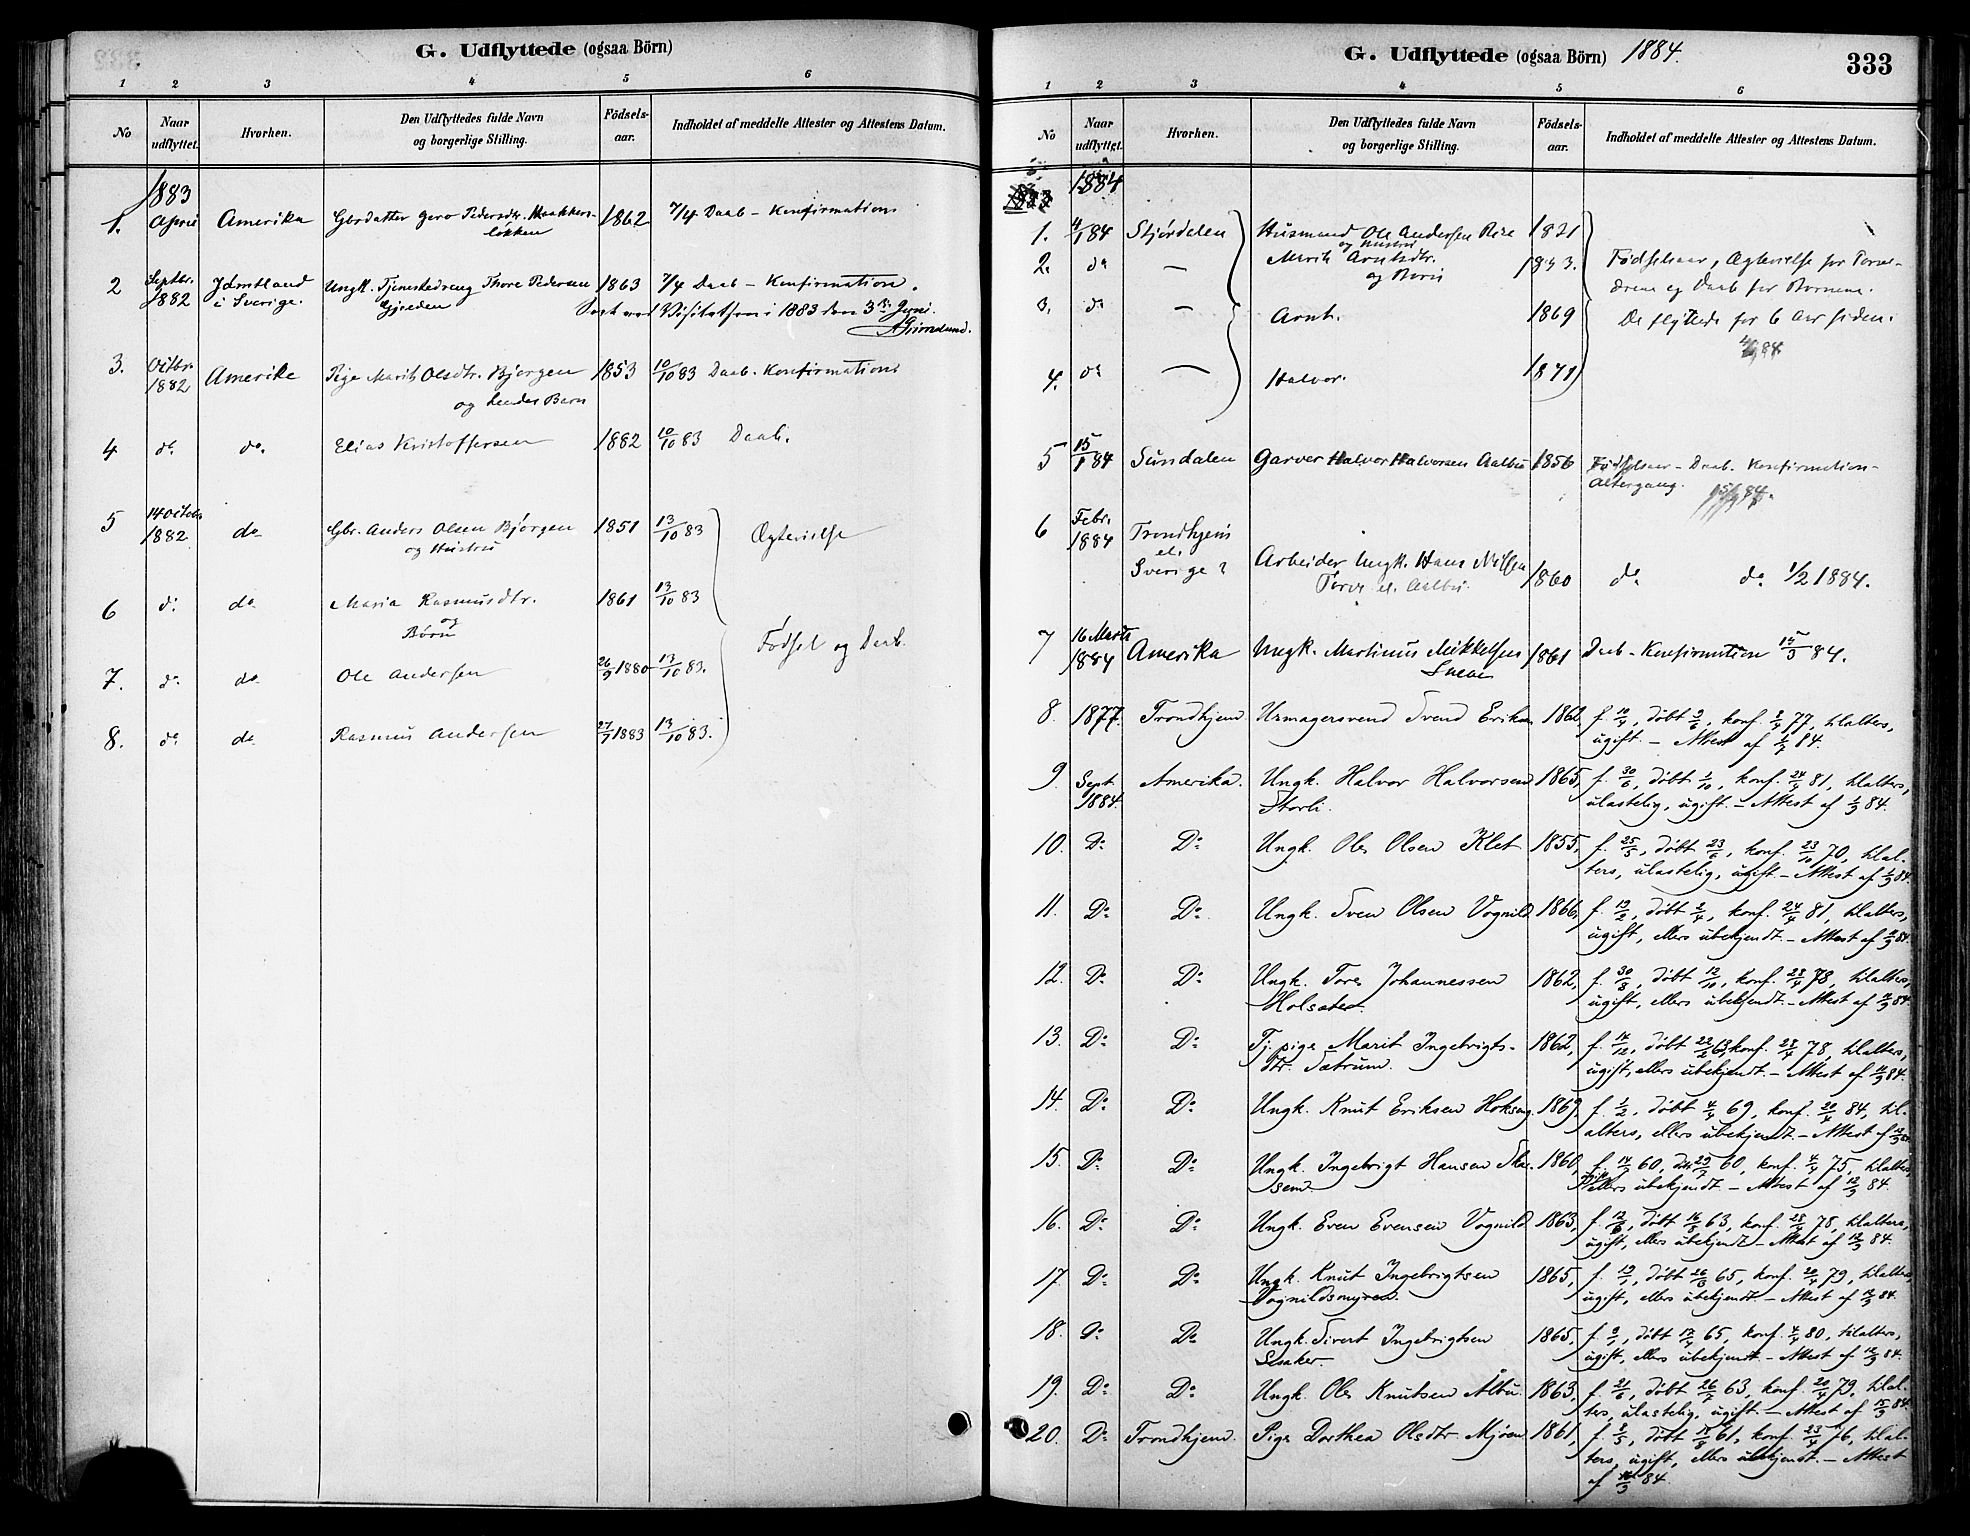 G. Udflyttede (ogsaa Börn)
1 2 3 4 5 6
No Naar udflyttet. Hvorhen. Den Udflyttedes fulde Navn og borgerlige Stilling. Födsels-aar. Indholdet af meddelte Attester og Attestens Datum.
1883
1. April Amerika Gbrdatter Gero Pedersdtr. Haakkers- 1862 7/4 Daab - Konfirmation
løkken
2 Septbr. 1882 Jämtland i Sverige. Ungk. Tjenestedreng Thore Pedersen 1863 7/4 Daab - Konfirmation.
Gjørden
Visitatsen i 1883 den 3die Juni.
3. Octbr. 1882 Amerika Pige Marit Olsdtr. Bjørgen 1853 10/10 83 Daab. Konfirmation
og hendes Barn
4 do. do. Elias Kristoffersen 1882 10/10 83 Daab.
5 14 Octob. 1882 do Gbr. Anders Olsen Bjørgen 1851 13/10 83 Ægtevielse
og Hustru
6 do. do. Maria Rasmusdtr. 1861 13/10 83
og
Børn
Fødsel og Daab.
7. do do Ole Andersen 26/9 1880 13/10 83.
8. do do Rasmus Andersen 27/7 1883 13/10 83.
G. Udflyttede (ogsaa Börn) 1884. 333
1 2 3 4 5 6
No Naar udflyttet. Hvorhen. Den Udflyttedes fulde Navn og borgerlige Stilling. Födsels-aar. Indholdet af meddelte Attester og Attestens Datum.
1884
1. 4/1 84 Stjørdalen Husmand Ole Andersen Rise 1821
og Hustru
2. do — Marit Arntsdtr. 1833. Fødselsaar, Ægtevielse for Foræl-
og Børn
drene og Daab for Børnene.
3. do — Arnt. 1869 De flyttede for 6 Aar siden.
4/1 84
4. do — Halvor. 1871
5 15/1 84 Sundalen Garver Halvor Halvorsen Aalbu 1856 Fødselsaar - Daab. Konfirmation -
Altergang.
15/1 84.
6 Febr. 1884 Trondhjem el. Sverige? Arbeider Ungk. Hans Nilsen 1860 do do 1/2 1884.
el. Aalbu
7 16 Marts 1884 Amerika Ungk. Martinus Mikkelsen 1861 Daab - Konfirmation 15/3 84.
8. 1877. Trondhjem. Urmagersvend Svend Eriksen 1862, f. 10/4, døbt 9/6, konf. 2/4 77, tilalters,
ugift. - Attest af 1/2 84.
9. Sept. 1884. Amerika. Ungk. Halvor Halvorsen 1865, f. 30/6, døbt 1/10, konf. 24/4 81, tilalters,
Storli. ulastelig, ugift. - Attest af 1/3 84.
10. Do Do Ungk. Ole Olsen Klet 1855, f. 25/5, døbt 23/6, konf. 23/10 70, tilal-
ters, ulastelig, ugift. - Attest af 1/3 84.
11. Do Do. Ungk. Sven Olsen Vognild 1866, f. 19/2, døbt 2/4, konf. 24/4 81, tilalters,
ugift, ellers ubekjendt. - Attest af 9/3 84.
12. Do Do Ungk. Tore Johannessen 1862, f. 30/8, døbt 12/10, konf. 28/4 78, tilalters,
Holsæter. ugift, ellers ubekjendt. - Attest af 12/3 84.
13. Do Do Tj. pige Marit Ingebrigts- 1862, f. 14/12, døbt 22/2 63, konf. 28/4 78, tilalters,
dtr. Sætrum. ugift, ellers ubekjendt. - Attest af 12/3 84.
14. Do Do Ungk. Knut Eriksen Hokseng. 1869, f. 1/2, døbt 4/4 69, konf. 20/4 84, til-
alters, ellers ubekjendt. - Attest af 12/3 84.
15. Do Do Ungk. Ingebrigt Hansen Ska- 1860, f. 14/7 60, døbt 29/7 60, konf. 4/4 75, tilalters,
send. ugift, ellers ubekjendt - Attest af 12/3 84.
16. Do Do. Ungk. Even Evensen Vognild 1863, f. 12/6, døbt 16/8 63, konf. 28/4 78, tilalters,
ugift, ellers ubekjendt. - Attest af 12/3 84.
17. Do Do Ungk. Knut Ingebrigtsen 1865, f. 19/7, døbt 26/8 65, konf. 20/4 79, tilalters,
Vognildsmyren. ugift, ellers ubekjendt. - Attest af 12/3 84.
18. Do Do Ungk. Sivert Ingebrigtsen 1865, f. 9/1, døbt 17/4 65, konf. 4/4 80, tilalters,
ugift, ellers ubekjendt. - Attest af 12/3 84.
19. Do Do. Ungk. Ole Knutsen Ålbu. 1863, f. 21/6, døbt 26/7 63, konf. 20/4 79, tilal-
ters, ulastelig, ugift. - Attest af 15/3 84.
20. Do Trondhjem. Pige Dorthea Olsdtr Mjøen 1861, f. 8/5, døbt 18/8 61, konf. 23/4 76, tilal-
ters, ugift, ellers ubekjendt. - Attest
af 16/3 84.